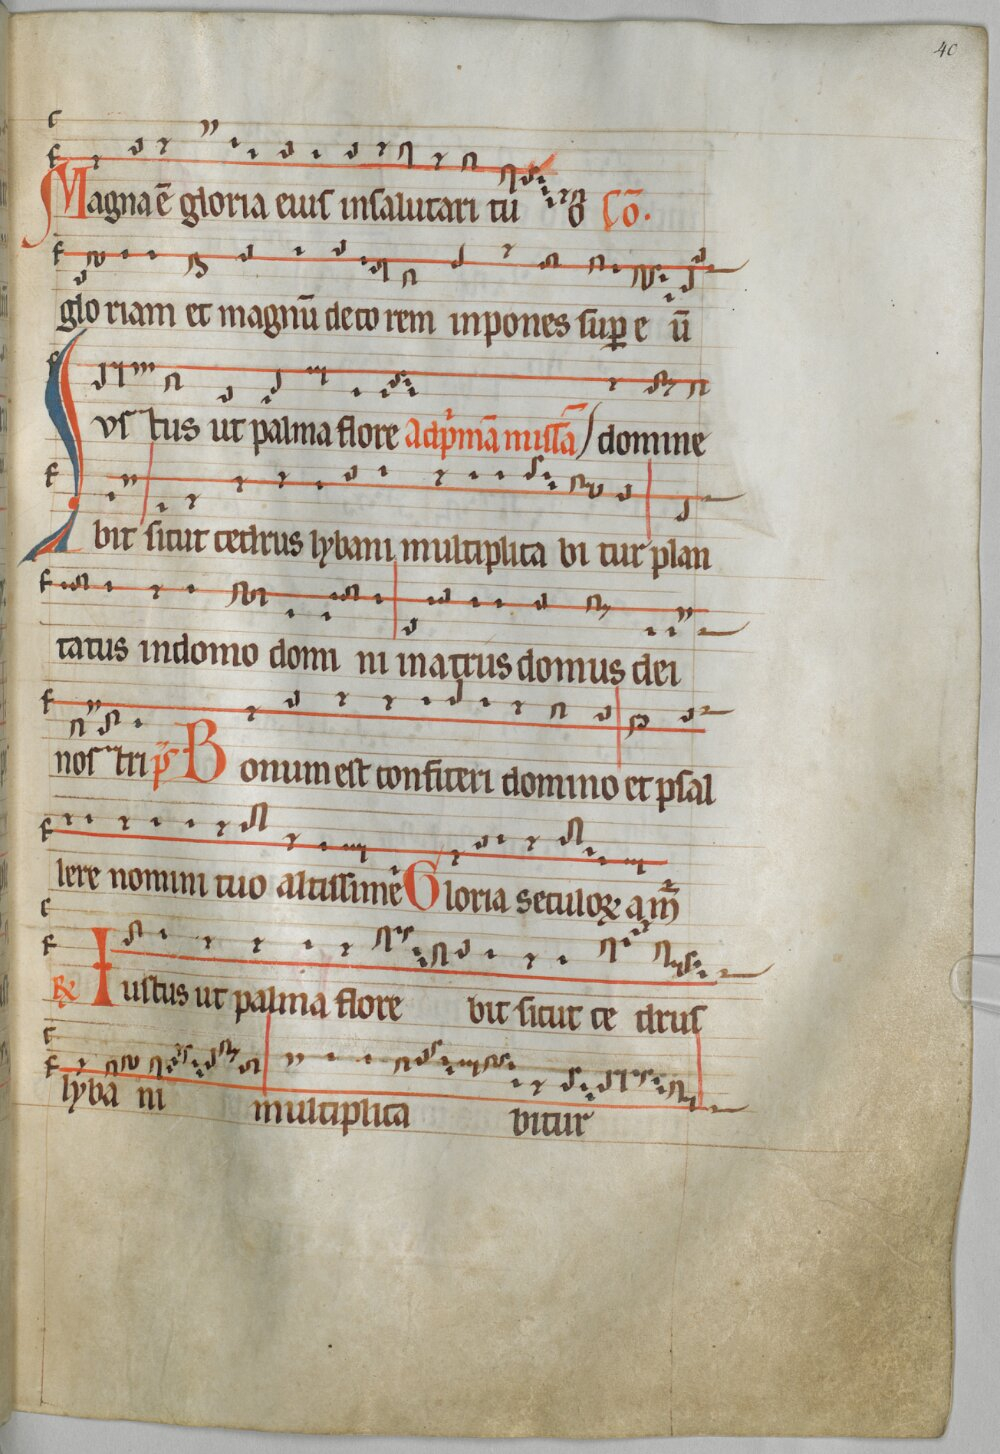 40
Magna ē gloria eius insalutari tu o Cō.
gloriam et magnū decorem inpones sup e ū
Iustus ut palma flore ad p̍mā missā domine
bit sicut cedrus lybani multiplica bi tur plan
tatus indomo domi ni inatriis domus dei
nostri p̄s Bonum est confiteri domino et psal
lere nomini tuo altissime Gloria seculoꝝ am̄
℟ Iustus ut palma flore bit sicut ce drus
lyba ni multiplica bitur